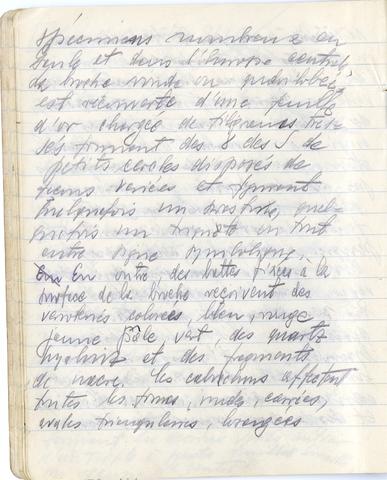 spécimens nombreux en
Gaule et dans l'Europe centrale
la broche ronde ou quadrilobée
est recouverte d'une feuille
d'or chargée de filigranes tres-
sés formant des 8 des S de
petits cercles disposés de
façons variées et formant
quelquefois un swastika, quel-
quefois un triquètre ou tout
autre signe symbolique.
En outre, des battes fixées à la
surface de la broche reçoivent des
verroteries colorées, bleu, rouge
jaune pâle, vert, des quartz
hyalins et des fragments
de nacre. Les cabochons affectent
toutes les formes, ronds, carrées,
ovales triangulaires, losangées